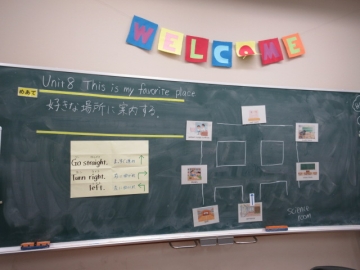 WELCOME
Unit 8 This is my favorite place
めあて
好きな場所に案内する。
Go straight.
Turn right.
left.
science
room